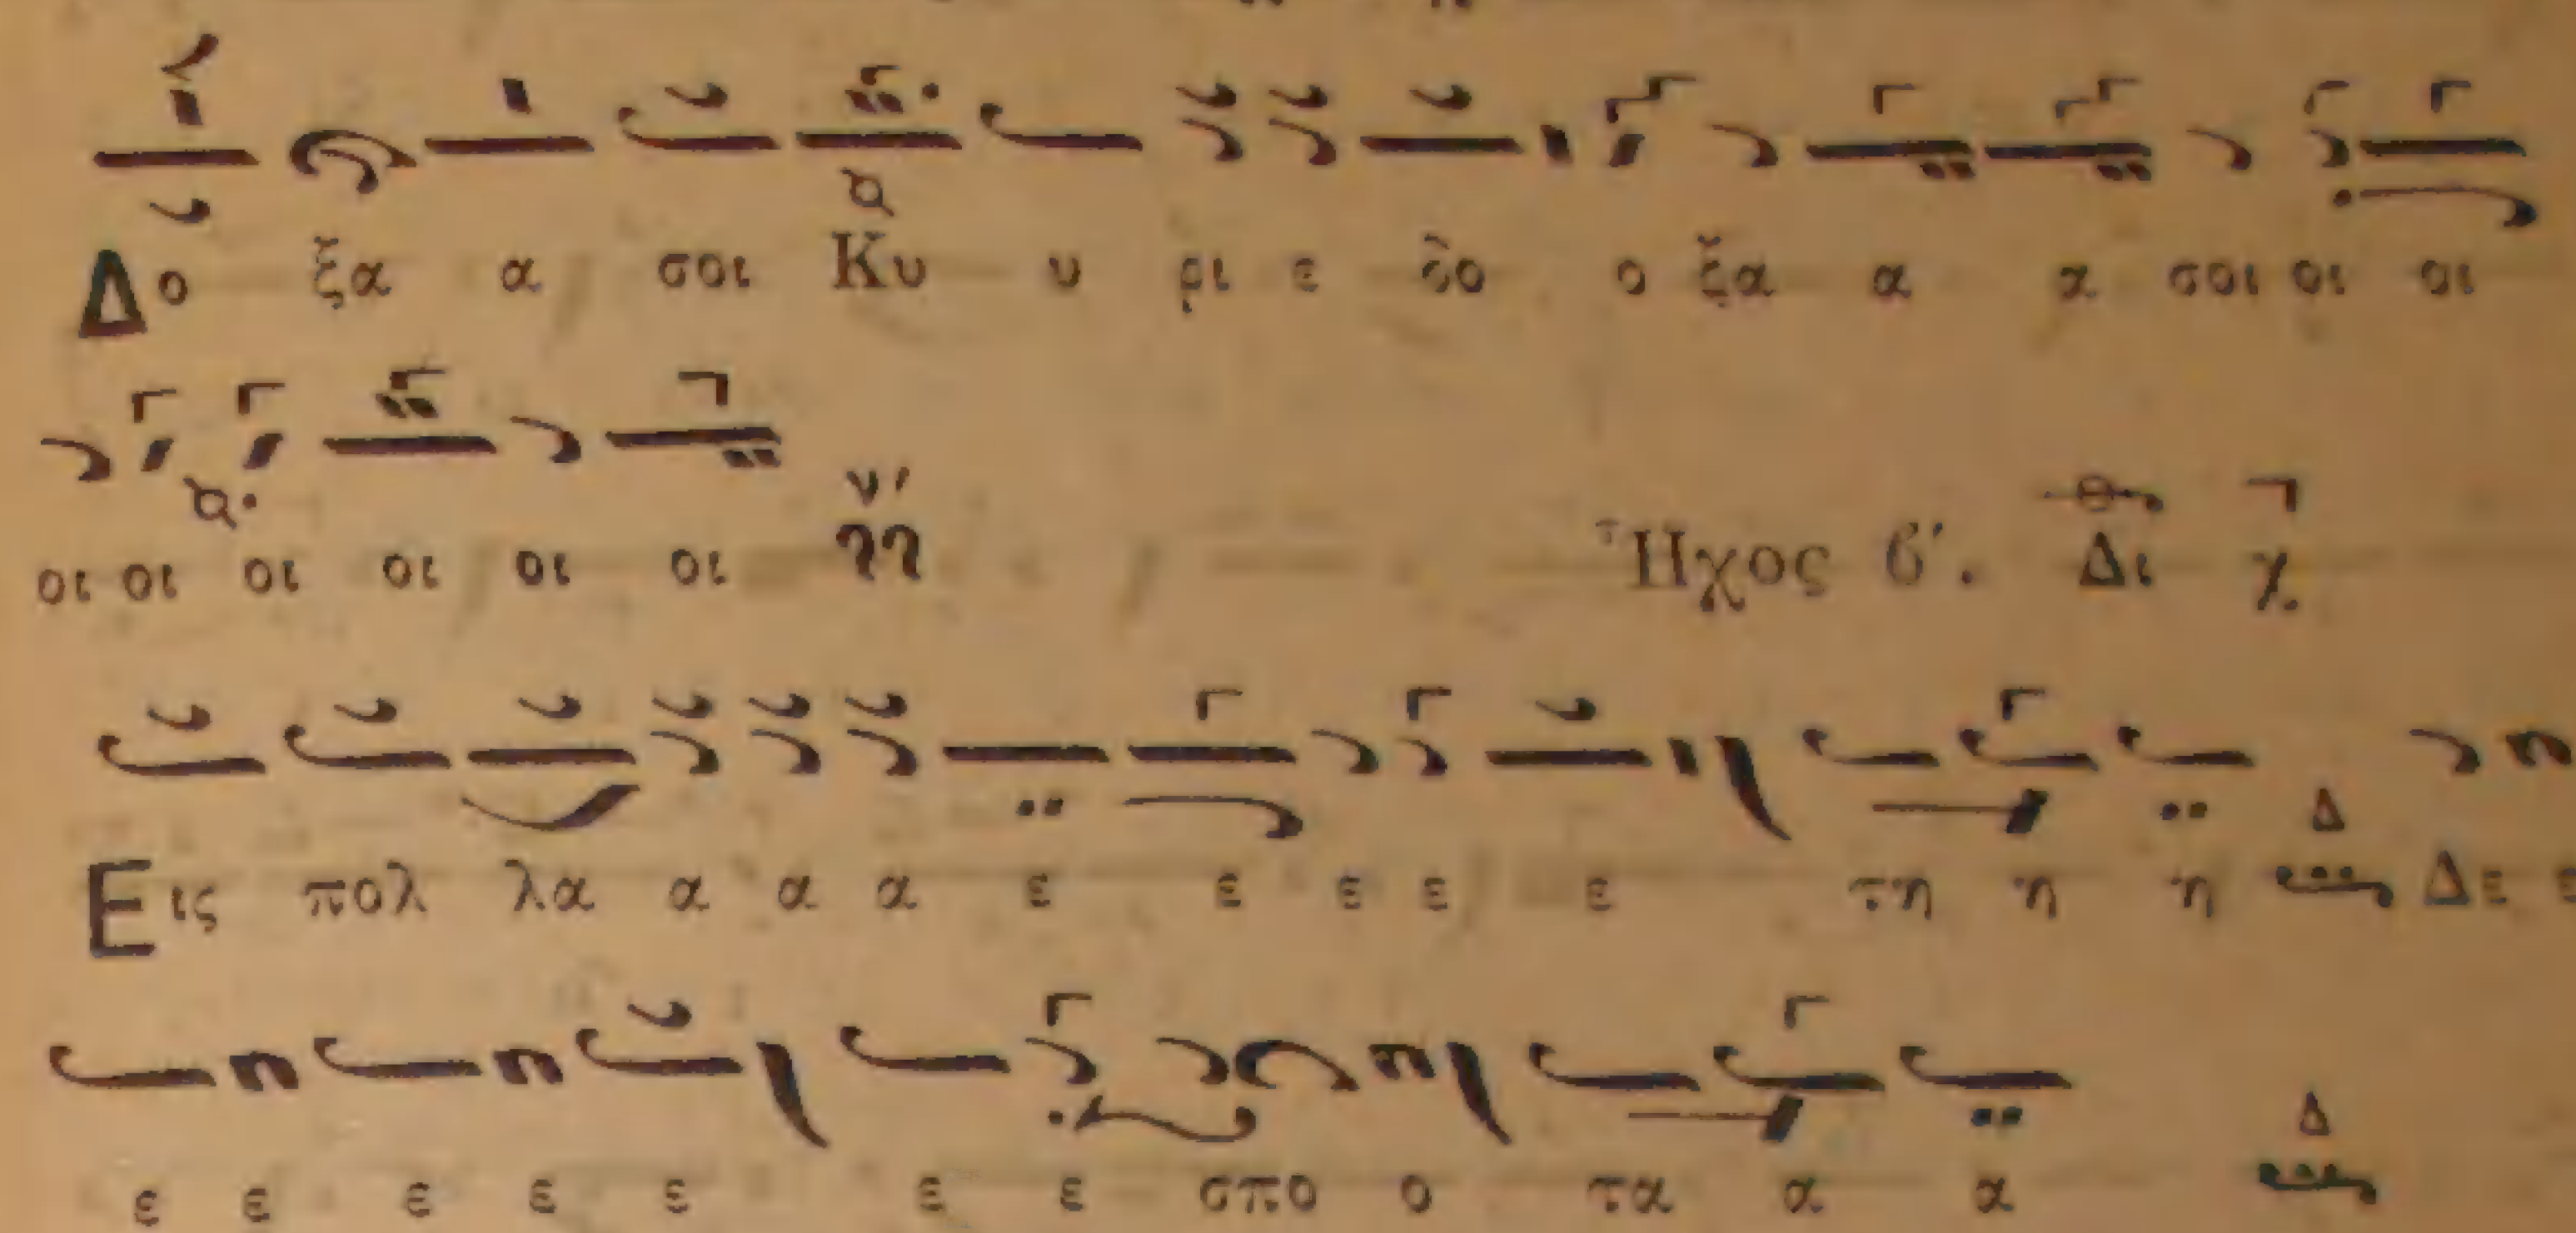 Δο ξα α σοι Κυ υ ρι ε δο ο ξα α α σοι οι οι
οι οι οι οι οι οι νʹ
Ἦχος βʹ. Δι χ
Εις πολ λα α α α ε ε ε ε ε τη η η Δ Δε ε
ε ε ε ε ε ε ε σπο ο τα α α Δ